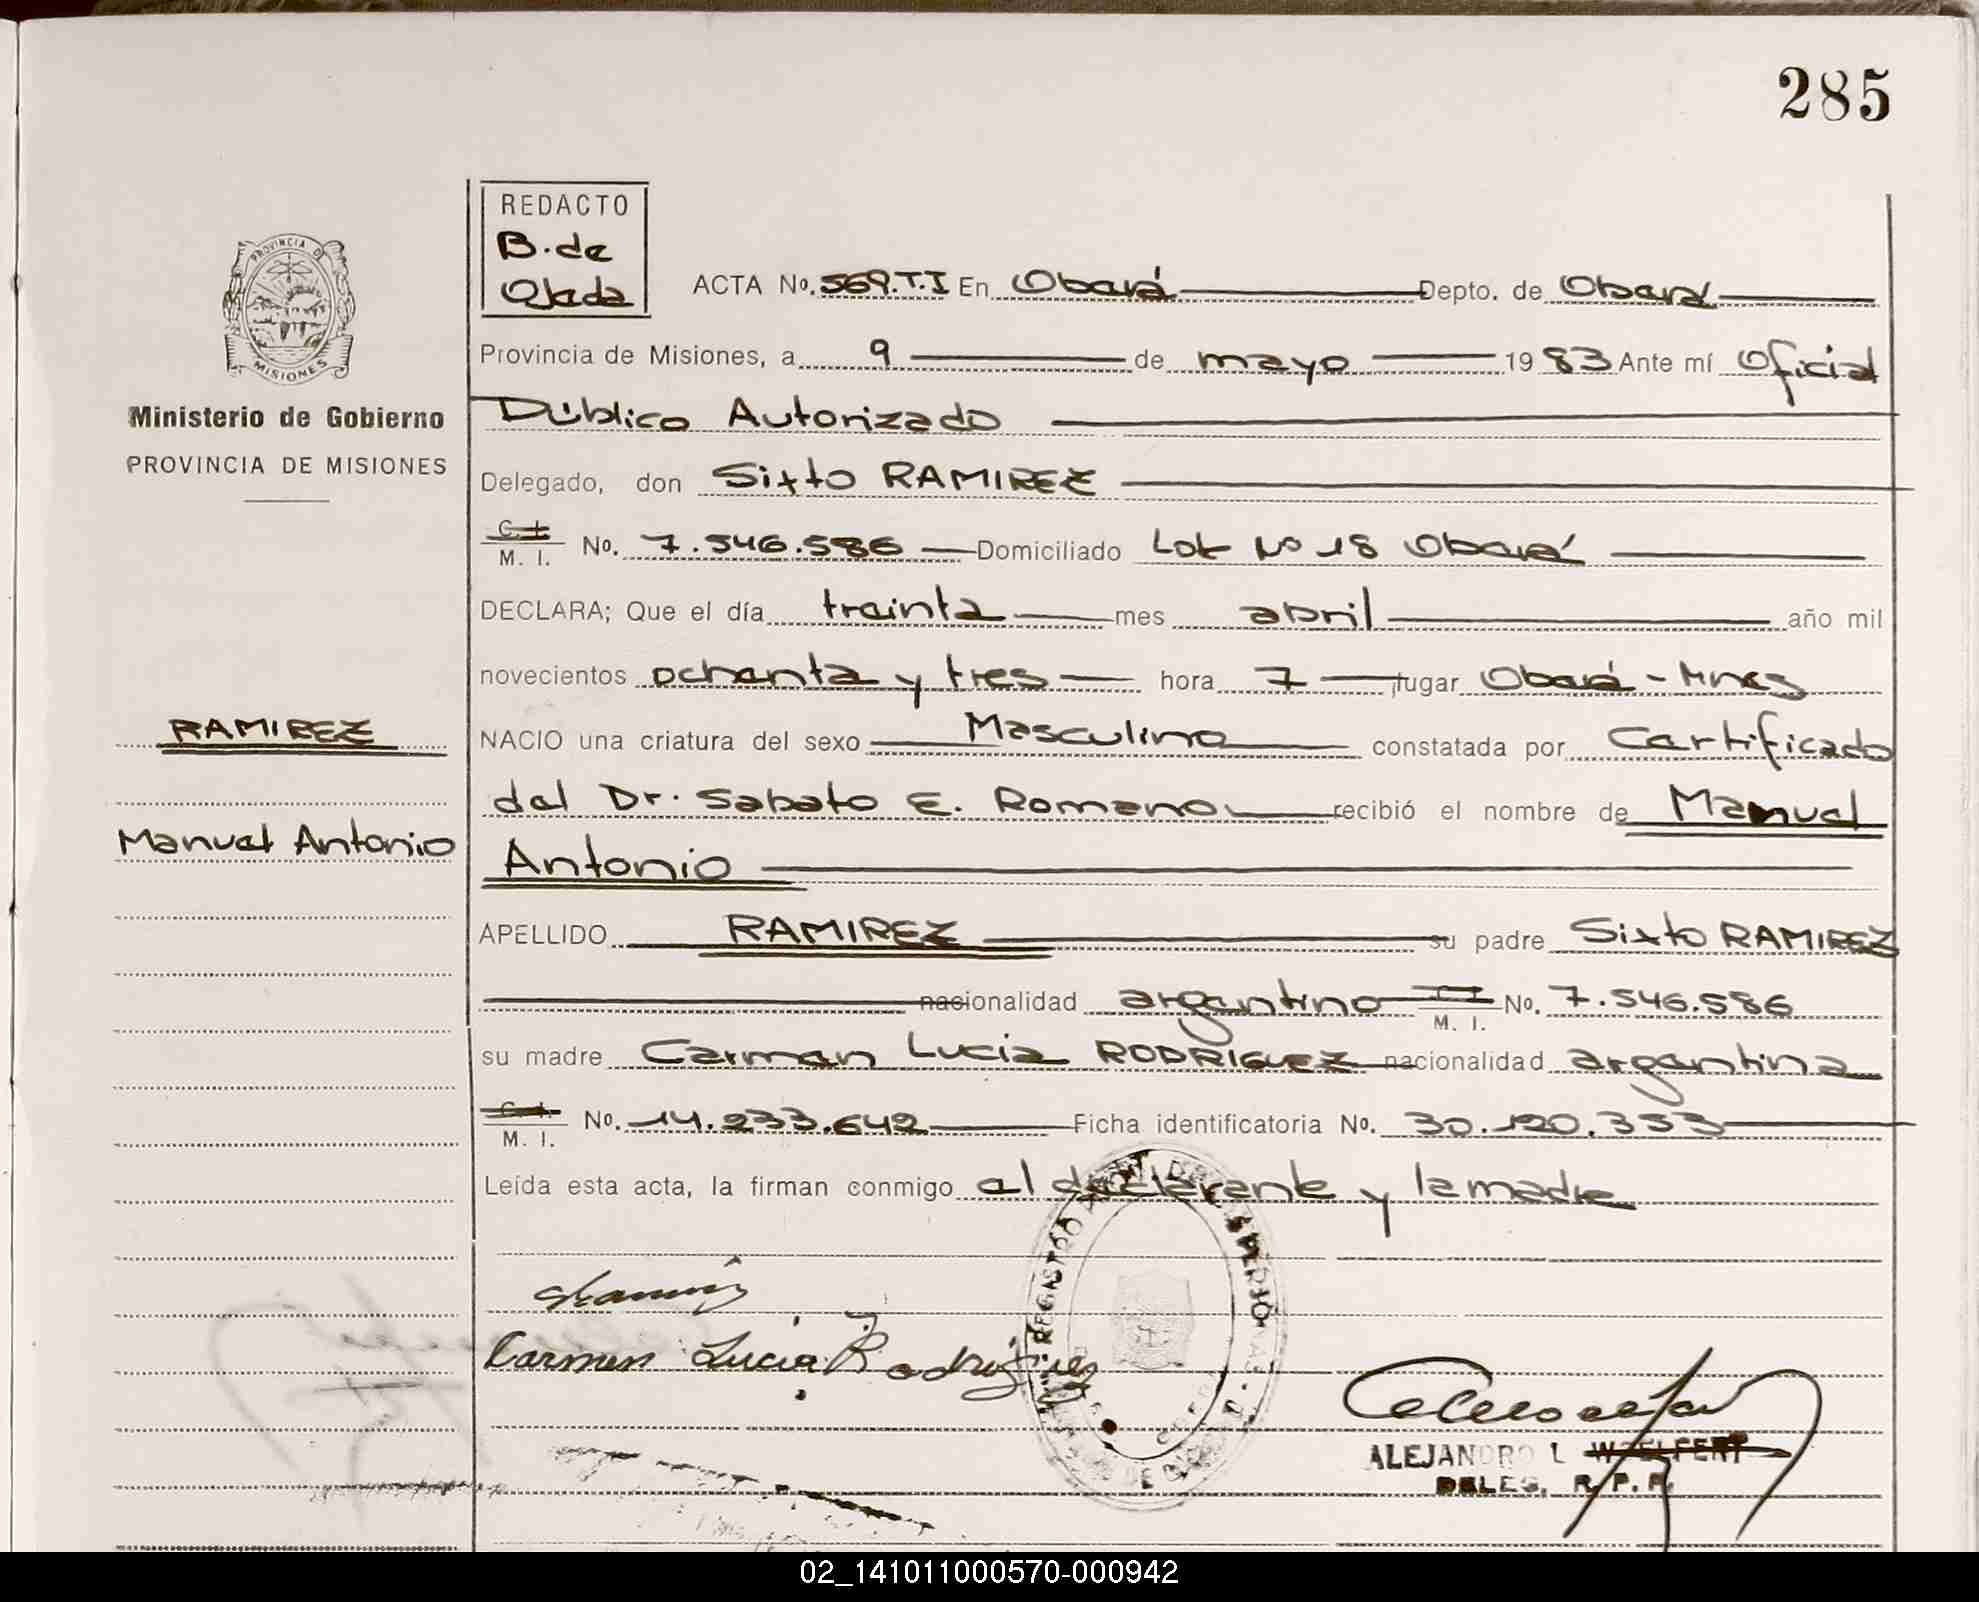 285
REDACTO
B. de
Ojeda
ACTA No. 569.T.I En Oberá Depto. de Oberá
Provincia de Misiones, a 9 de mayo 19 83 Ante mí Oficial
Público Autorizado
Delegado, don Sixto RAMIREZ
C. I.
M. I. No. 7.546.586 Domiciliado Lote Nº 18 Oberá
DECLARA; Que el día treinta mes abril año mil
novecientos ochenta y tres hora 7 lugar Oberá - Mnes
NACIO una criatura del sexo Masculino constatada por Certificado
del Dr. Sabato E. Romano recibió el nombre de Manuel
Antonio
APELLIDO RAMIREZ su padre Sixto RAMIREZ
nacionalidad argentino C. I. M. I. No. 7.546.586
su madre Carmen Lucia RODRIGUEZ nacionalidad argentina
C. I.
M. I. No. 14.233.642 Ficha identificatoria No. 30.120.333
Leída esta acta, la firman conmigo el declarante y la madre
Carmen Lucia Rodriguez
ALEJANDRO L WOELFERT
DELEG. R. P. P.
PROVINCIA D
MISIONES
Ministerio de Gobierno
PROVINCIA DE MISIONES
RAMIREZ
Manuel Antonio
02_141011000570-000942